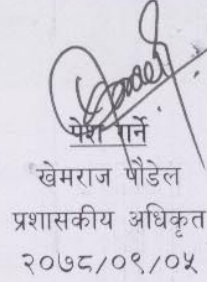 पेश गर्ने
खेमराज पौडेल
प्रशासकीय अधिकृत
२०७८/०९/०५